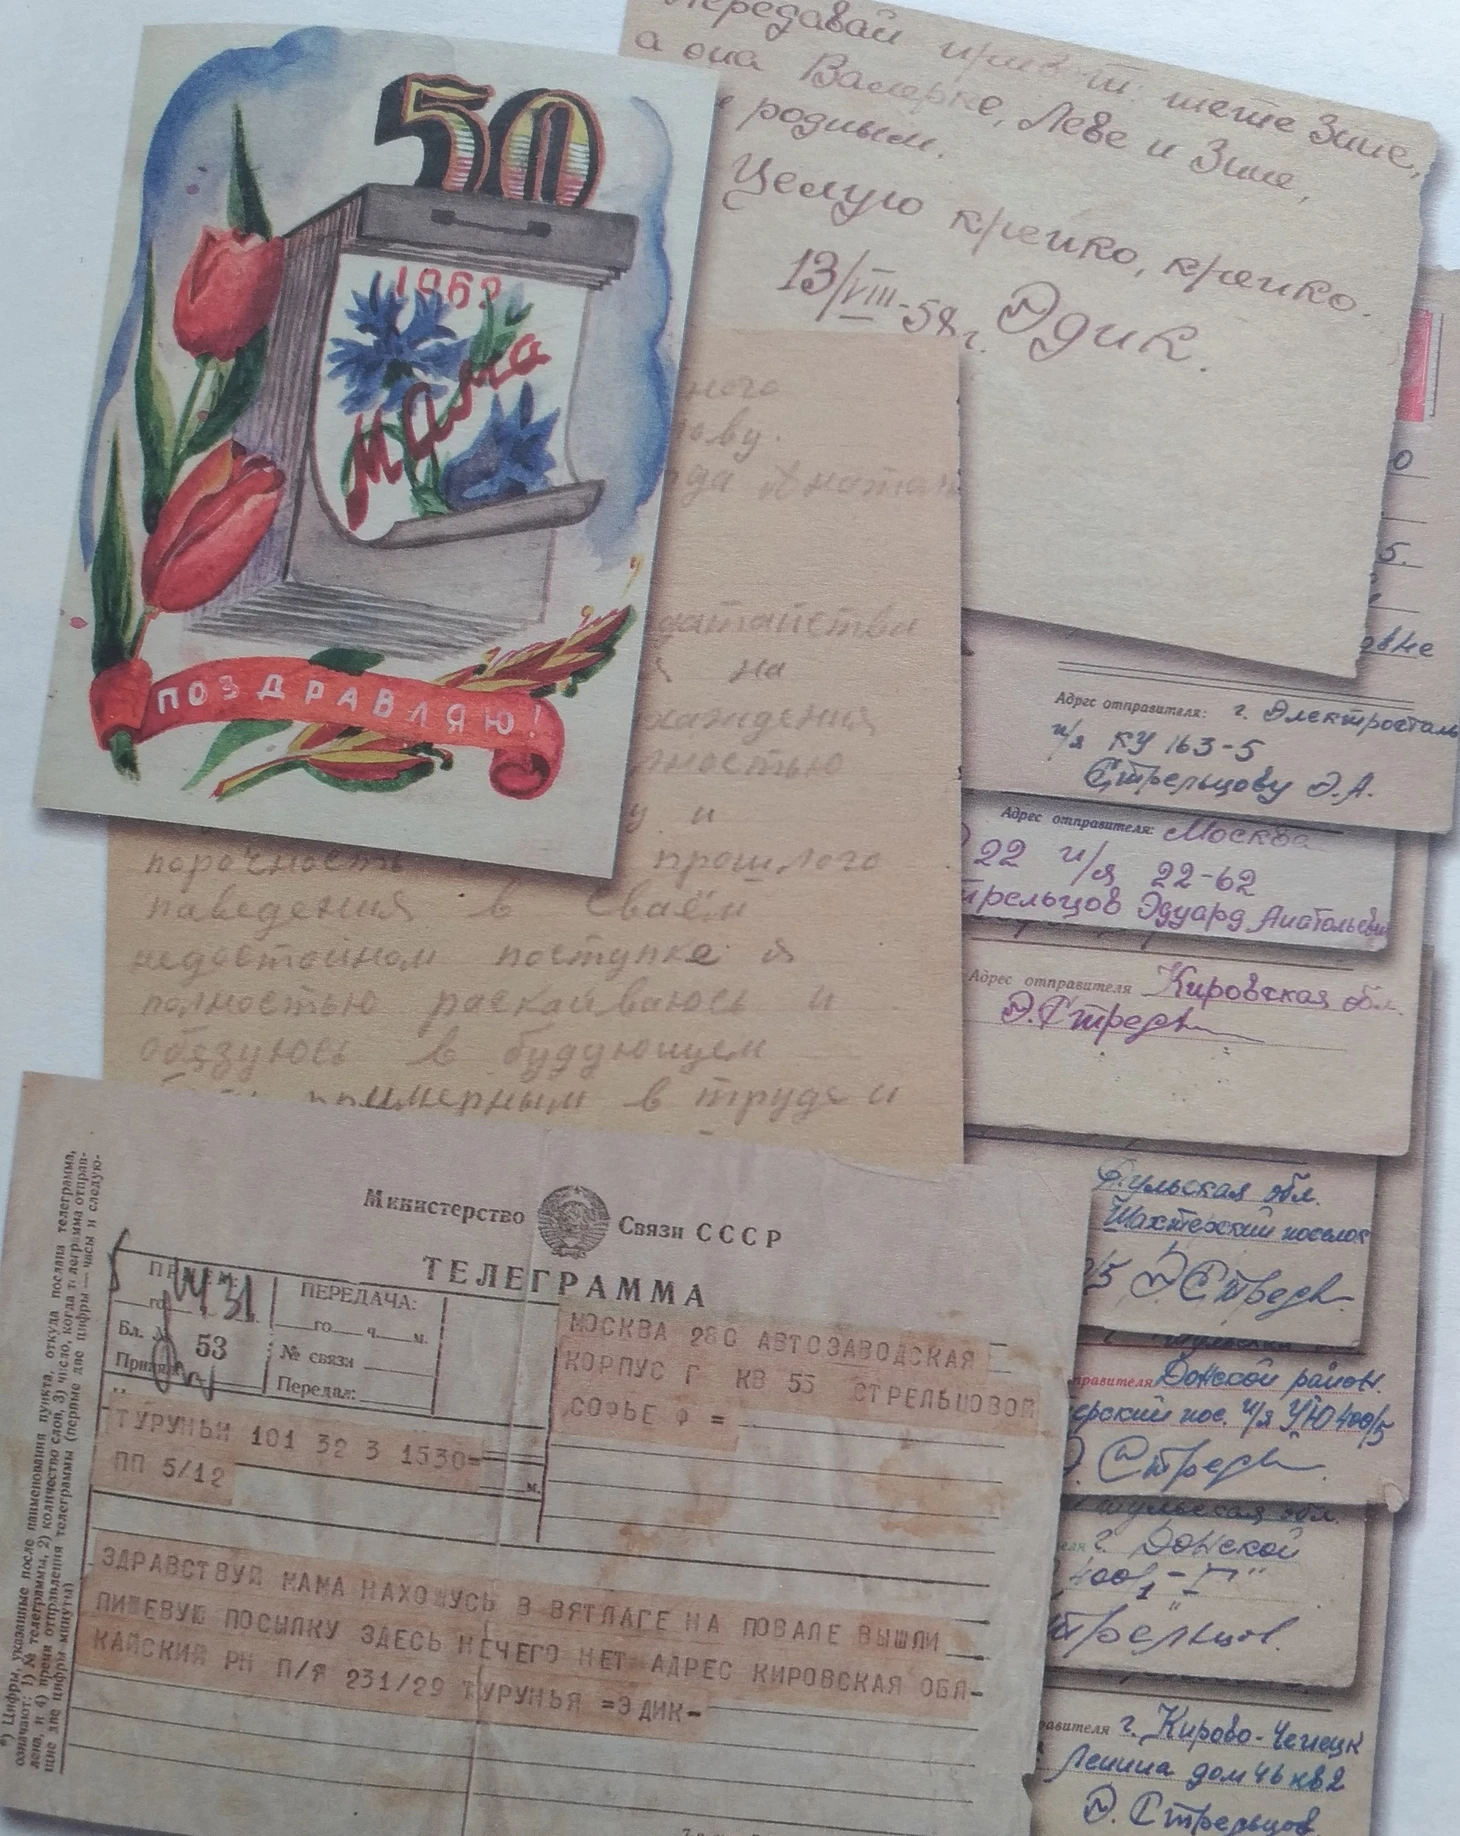 50
1962
Мама
ПОЗДРАВЛЯЮ!
Передавай привет тете Зине,
а она Валерке, Леве и Зине,
и родным.
Целую крепко, крепко.
13/VIII-58 г. Эдик.
ного
ову.
да Анатоль
датайстви
на
хаждения
лностью
у и
порочность прошлого
паведения в сваём
недостойном поступке я
полностью раскаиваюсь и
обязуюсь в будующем
примерным в труде и
О
5.
овне
Адрес отправителя: г. Электросталь
п/я КУ 163-5
Стрельцову Э.А.
Адрес отправителя: Москва
22 п/я 22-62
трельцов Эдуард Анатольевич
Адрес отправителя Кировская обл.
Э.Стрель
Тульская обл.
Шахтерский поселок
/5 Э Стрель
правителя Донской район.
ерский пос. п/я УЮ 400/5
Э. Стрель
Тульская обл.
еля г. Донской
400/1 - "Г"
трельцов.
равителя г. Кирово-Чепецк
Ленина дом 46 кв 2
Э. Стрельцов
Министерство Связи СССР
ТЕЛЕГРАММА
ПРИЕМ:
го
Бл. № 53
Принял
ПЕРЕДАЧА:
го ч. м.
№ связи
Передал:
МОСКВА 280 АВТОЗАВОДСКАЯ
КОРПУС Г КВ 55 СТРЕЛЬЦОВОЙ
СОФЬЕ Ф =
ТУРУНЬИ 101 32 3 1530=
м.
ПП 5/12
ЗДРАВСТВУЙ МАМА НАХОЖУСЬ В ВЯТЛАГЕ НА ПОВАЛЕ ВЫШЛИ
ПИШЕВУЮ ПОСЫЛКУ ЗДЕСЬ НЕЧЕГО НЕТ АДРЕС КИРОВСКАЯ ОБЛ-
КАЙСКИЙ РН П/Я 231/29 ТУРУНЬЯ =ЭДИК-
*) Цифры, указанные после наименования пункта, откуда послана телеграмма,
означают: 1) № телеграммы, 2) количество слов, 3) число, когда телеграмма отправ-
лена, и 4) время отправления телеграммы (первые две цифры — часы и следую-
щие две цифры минуты)